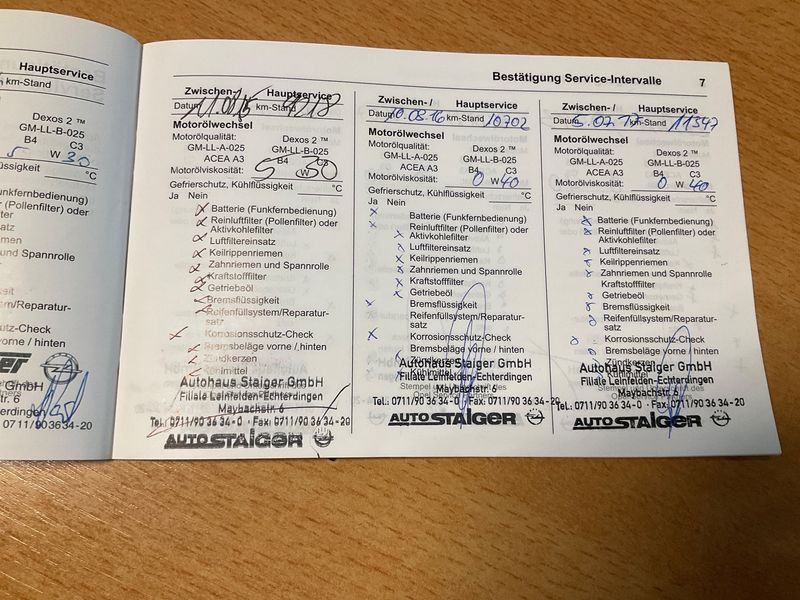 Hauptservice
km-Stand
Dexos 2 ™
GM-LL-B-025
B4 C3
5 W 30
°C
Bestätigung Service-Intervalle 7
Zwischen-/ Hauptservice
Datum km-Stand 9218
Motorölwechsel
Motorölqualität: Dexos 2 ™
GM-LL-A-025 GM-LL-B-025
ACEA A3 B4 C3
Motorölviskosität: 5 W 30
Gefrierschutz, Kühlflüssigkeit °C
Ja Nein
Batterie (Funkfernbedienung)
Reinluftfilter (Pollenfilter) oder
Aktivkohlefilter
Luftfiltereinsatz
Keilrippenriemen
Zahnriemen und Spannrolle
Kraftstofffilter
Getriebeöl
Bremsflüssigkeit
Reifenfüllsystem/Reparatur-
satz
Korrosionsschutz-Check
Bremsbeläge vorne / hinten
Zündkerzen
Kühlmittel
Autohaus Staiger GmbH
Filiale Leinfelden-Echterdingen
Maybachstr. 6
Tel.: 0711/90 36 34-0 · Fax: 0711/90 36 34-20
AUTO STAIGER
Zwischen-/ Hauptservice
Datum 10.08.16 km-Stand 10702
Motorölwechsel
Motorölqualität: Dexos 2 ™
GM-LL-A-025 GM-LL-B-025
ACEA A3 B4 C3
Motorölviskosität: 0 W 40
Gefrierschutz, Kühlflüssigkeit °C
Ja Nein
Batterie (Funkfernbedienung)
Reinluftfilter (Pollenfilter) oder
Aktivkohlefilter
Luftfiltereinsatz
Keilrippenriemen
Zahnriemen und Spannrolle
Kraftstofffilter
Getriebeöl
Bremsflüssigkeit
Reifenfüllsystem/Reparatur-
satz
Korrosionsschutz-Check
Bremsbeläge vorne / hinten
Zündkerzen
Kühlmittel
Autohaus Staiger GmbH
Filiale Leinfelden-Echterdingen
Maybachstr. 6
Tel.: 0711/90 36 34-0 · Fax: 0711/90 36 34-20
AUTO STAIGER
Zwischen-/ Hauptservice
Datum 5.07.17 km-Stand 11347
Motorölwechsel
Motorölqualität: Dexos 2 ™
GM-LL-A-025 GM-LL-B-025
ACEA A3 B4 C3
Motorölviskosität: 0 W 40
Gefrierschutz, Kühlflüssigkeit °C
Ja Nein
Batterie (Funkfernbedienung)
Reinluftfilter (Pollenfilter) oder
Aktivkohlefilter
Luftfiltereinsatz
Keilrippenriemen
Zahnriemen und Spannrolle
Kraftstofffilter
Getriebeöl
Bremsflüssigkeit
Reifenfüllsystem/Reparatur-
satz
Korrosionsschutz-Check
Bremsbeläge vorne / hinten
Zündkerzen
Kühlmittel
Autohaus Staiger GmbH
Filiale Leinfelden-Echterdingen
Maybachstr. 6
Tel.: 0711/90 36 34-0 · Fax: 0711/90 36 34-20
AUTO STAIGER